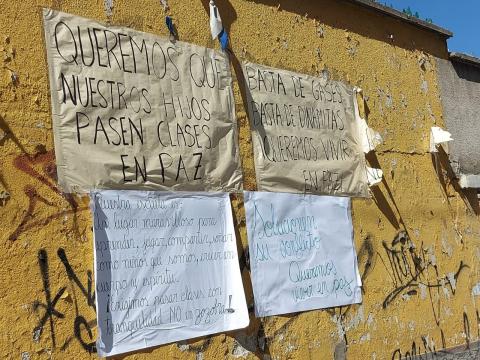 QUEREMOS QUE
NUESTROS HIJOS
PASEN CLASES
EN PAZ
BASTA DE GASES
BASTA DE DINAMITAS
QUEREMOS VIVIR
EN PAZ
Nuestra escuela es
un lugar maravilloso para
aprender, jugar, compartir,
como niños que somos,
cuerpo y espíritu.
pasar clases con
tranquilidad NO
Solucionen
su conflicto
Queremos
vivir en paz